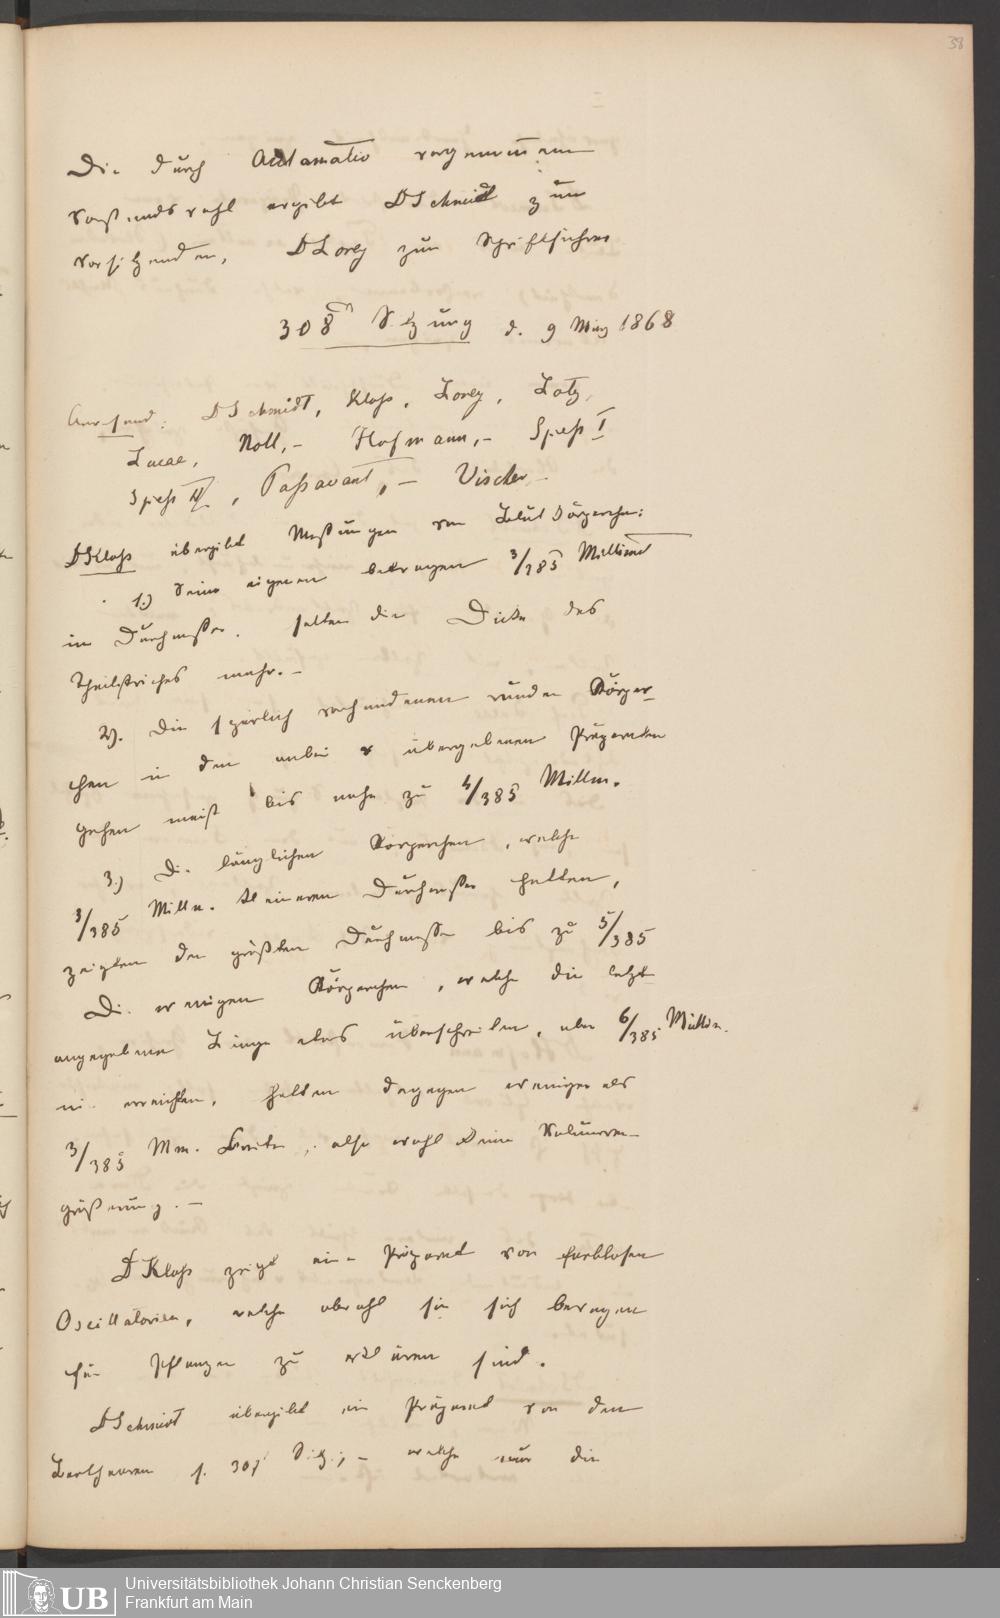 38
Die durch Acclamatio vorgenommene
Vorstandswahl ergibt Dr Schmidt zum
Vorsitzenden, Dr Lorey zum Schriftführer
308te Sitzung d. 9 März 1868
Anwesend: Dr Schmidt, Kloß, Lorey, Lotz,
Lucae, Noll, – Hofmann, – Spieß I
Spieß II, Passavant, – Vischer –
Dr Kloß übergibt Messungen von Blutkörperchen:
1.) Seine eigenen betragen 3/385 Millimet
im Durchmesser. selten die Dicke des
Theilstriches mehr. –
2). Die spärlich vorhandenen runden Körper-
chen in den anbei übergebenen Präparaten
gehen meist bis nahe zu 4/385 Millm.
3.) Die länglichen Körperchen, welche
3/385 Millm. kleineren Durchmesser hatten,
zeigten den größten Durchmesser bis zu 5/385
Die wenigen Körperchen, welche die letzt
angegebene Länge etwas überschreiten, aber 6/385 Millm.
nie erreichten, hatten dagegen weniger als
3/385 Mm. Breite, also wohl keine Volumver-
größerung. –
Dr Kloß zeigt eine Präparat von farblosen
Oscillatorien, welche obwohl sie sich bewegen
für Pflanzen zu erklären sind.
Dr Schmidt übergibt ein Präparat von den
s. 307 Sitz; – welche nur die
Universitätsbibliothek Johann Christian Senckenberg
Frankfurt am Main
UB